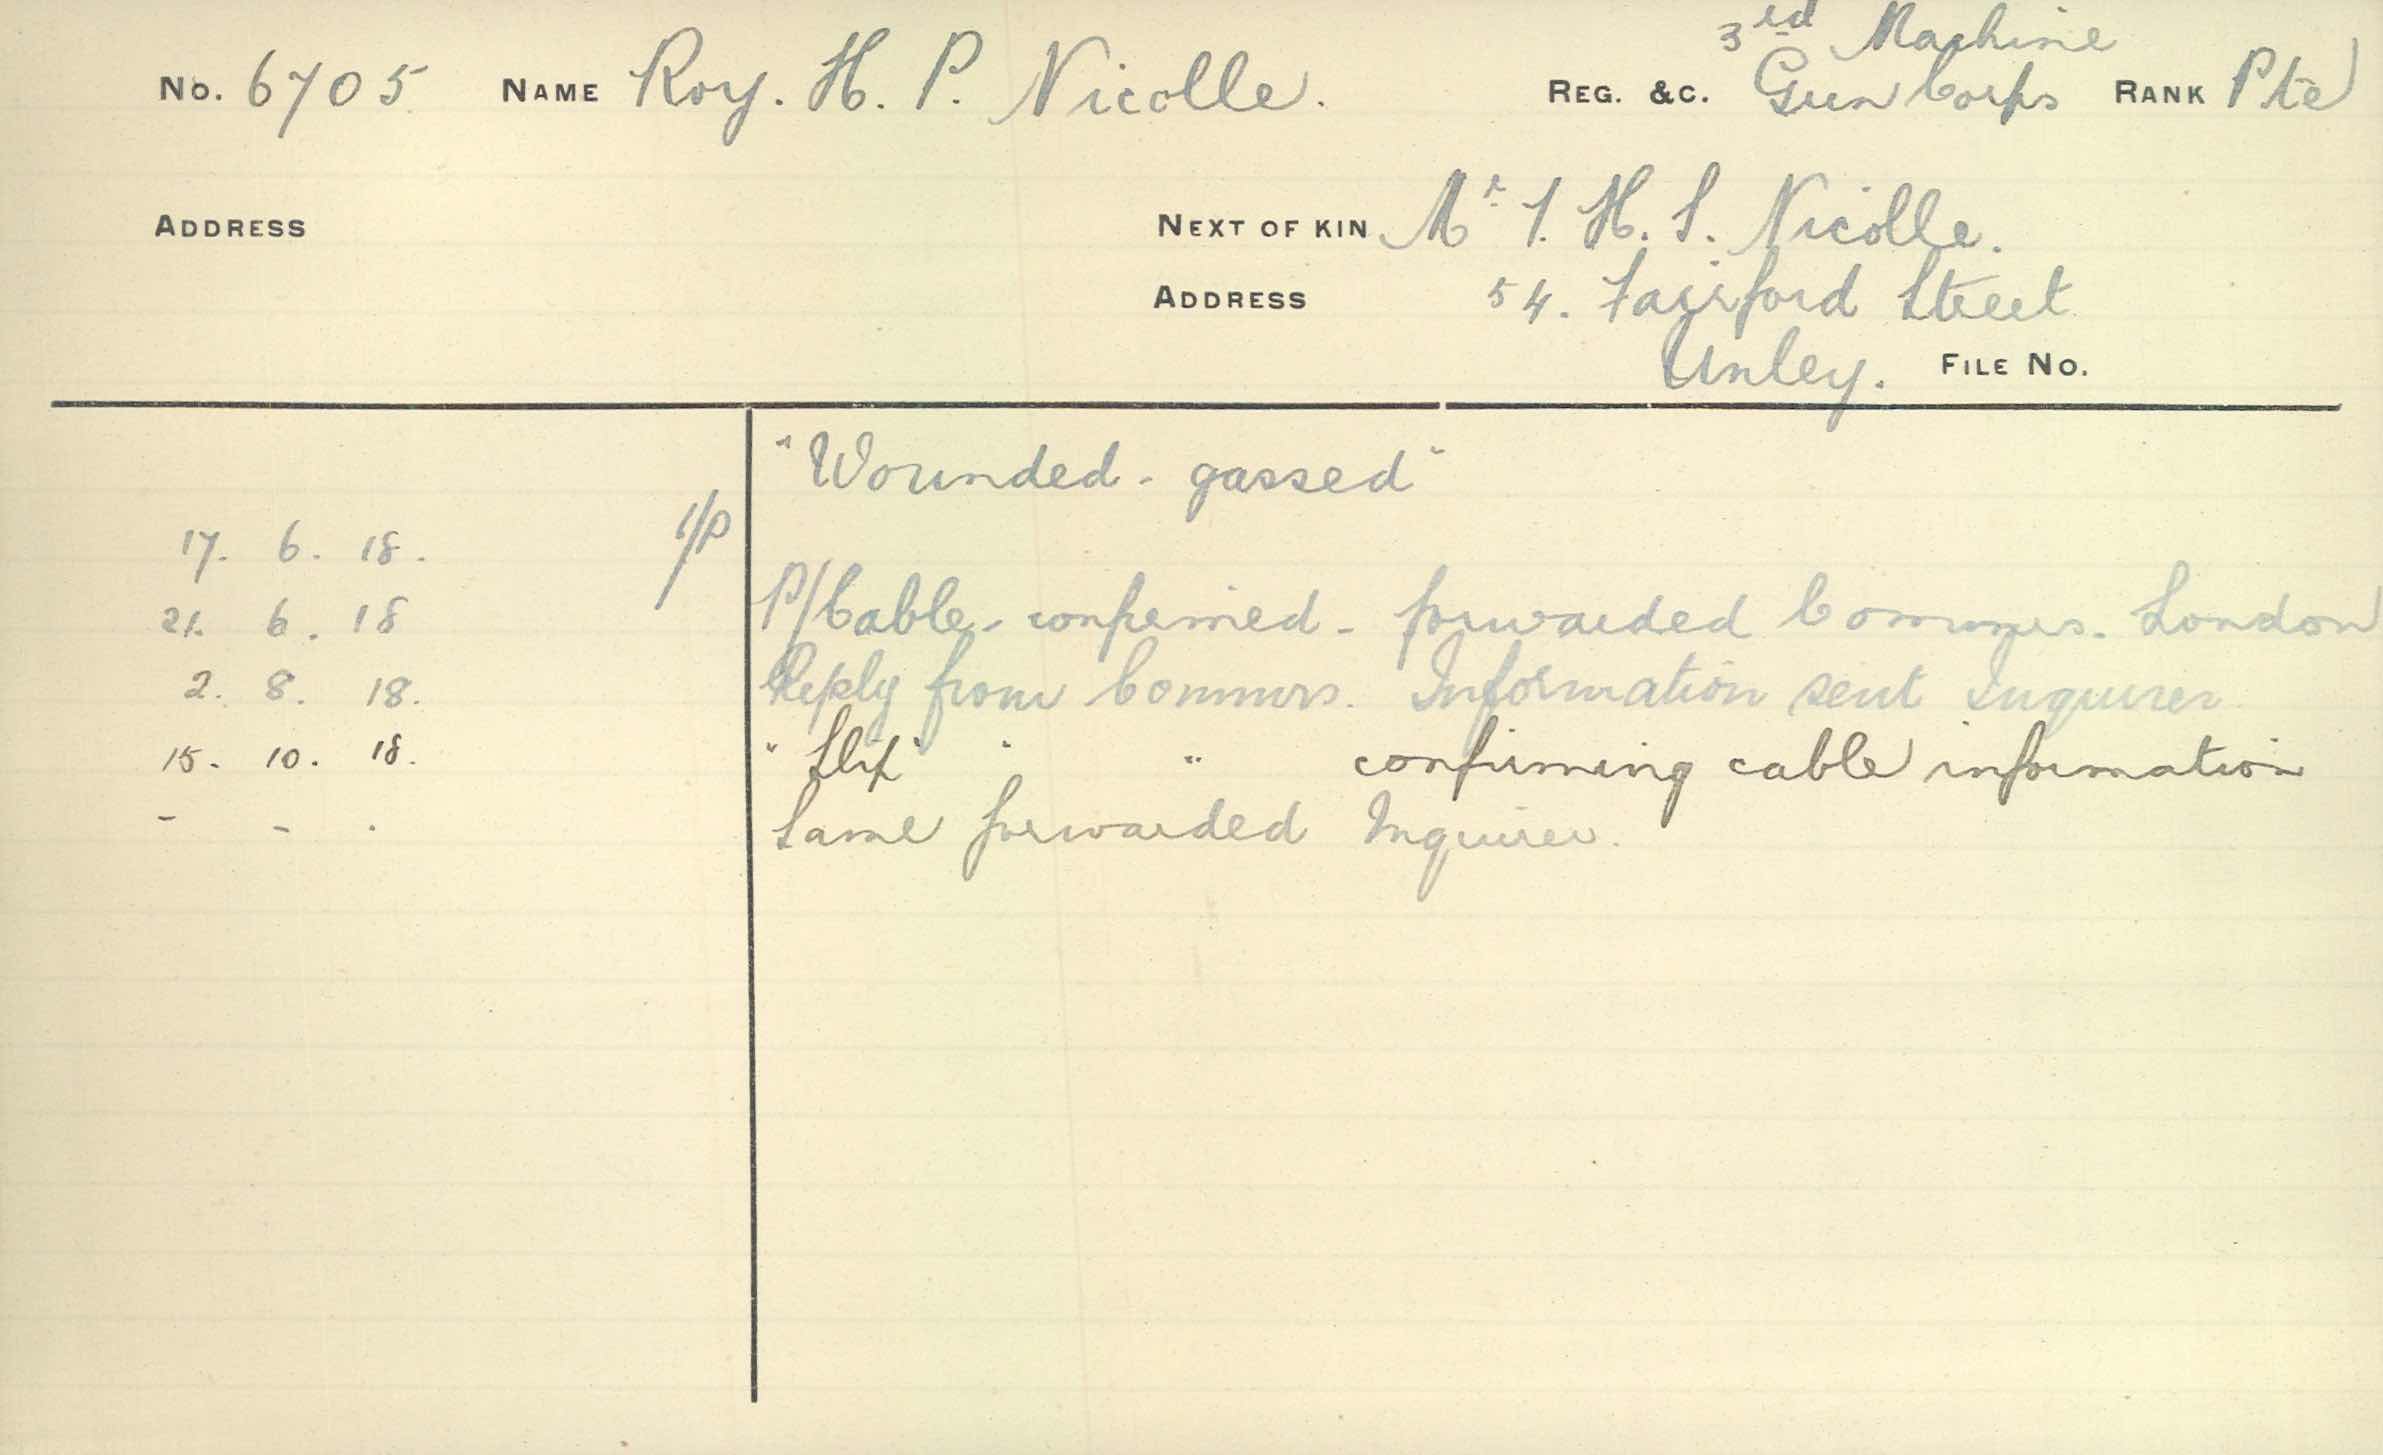 3rd Machine
No. 6705 NAME Roy. H. P. Nicolle. REG. &C. Gun Corps RANK Pte
ADDRESS NEXT OF KIN Mr H. S. Nicolle.
ADDRESS 54. Fairford Street
Unley. FILE No.
"Wounded - gassed"
17. 6. 18.
21. 6. 18 P/Cable - confirmed - forwarded Commrs. London
2. 8. 18. Reply from Commrs. Information sent Inquirer
15. 10. 18. " Slip " " " confirming cable information
- - . Same forwarded Inquirer.